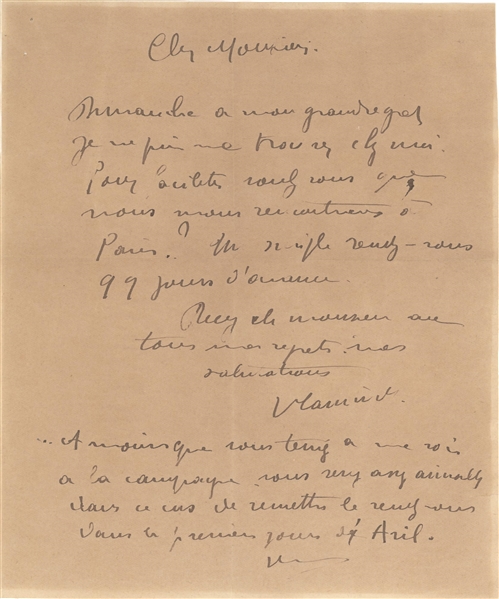 Cher Monsieur.
Dimanche a mon grand regret
Je ne puis me trouver chez moi.
Pour voulez vous que
nous nous rencontrions à
Paris? Un simple rendez-vous
99 jours d'avance.
Recevez ch monsieur avec
tous mes regrets mes
salutations
Vlaminck.
.. A moins que vous teniez a me voir
a la campagne vous serez assez aimable
dans ce cas de remettre le rendez-vous
dans les premiers jours d' Avril.